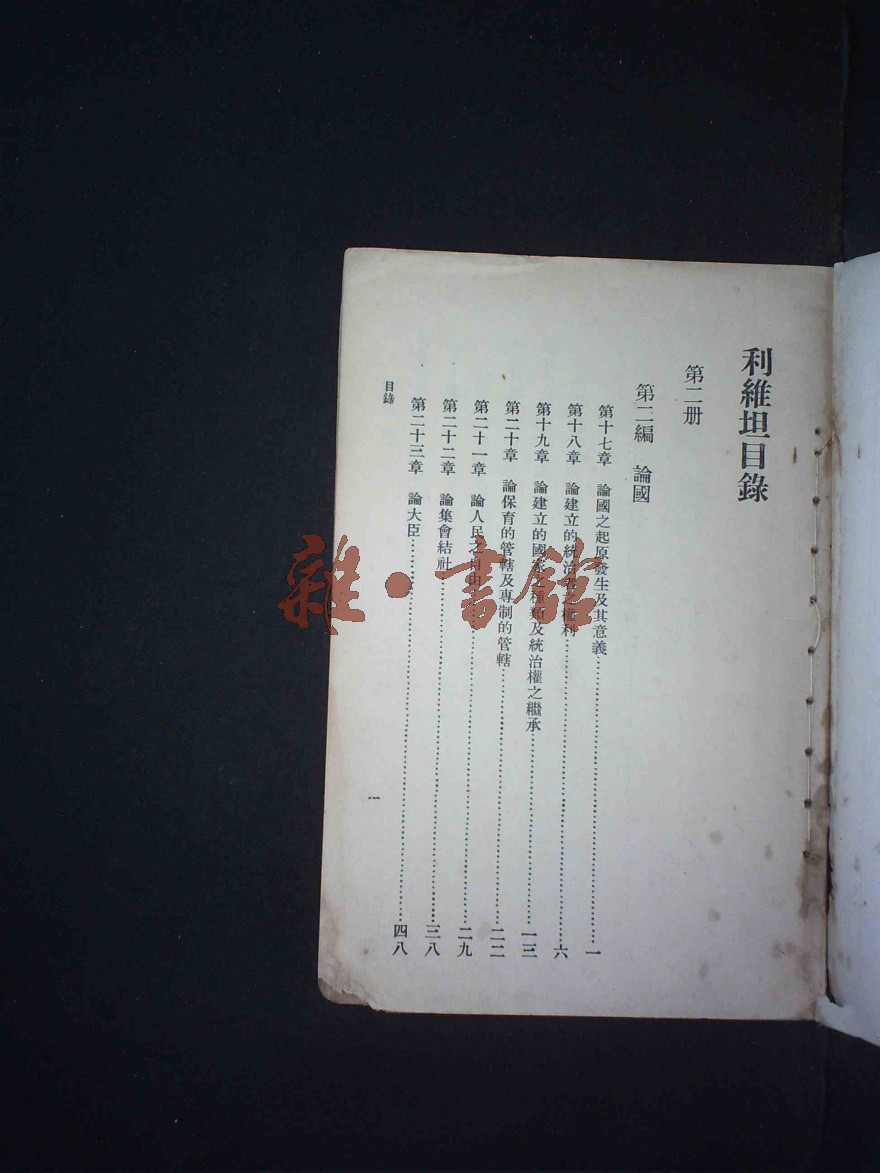 利維坦目錄
第二册
第二編　論國
第十七章　論國之起原發生及其意義…一
第十八章　論建立的統治者之權利…六
第十九章　論建立的國家之種類及統治權之繼承…一三
第二十章　論保育的管轄及專制的管轄…二二
第二十一章　論人民之自由…二九
第二十二章　論集會結社…三八
第二十三章　論大臣…四八
目錄
一
雜·書館